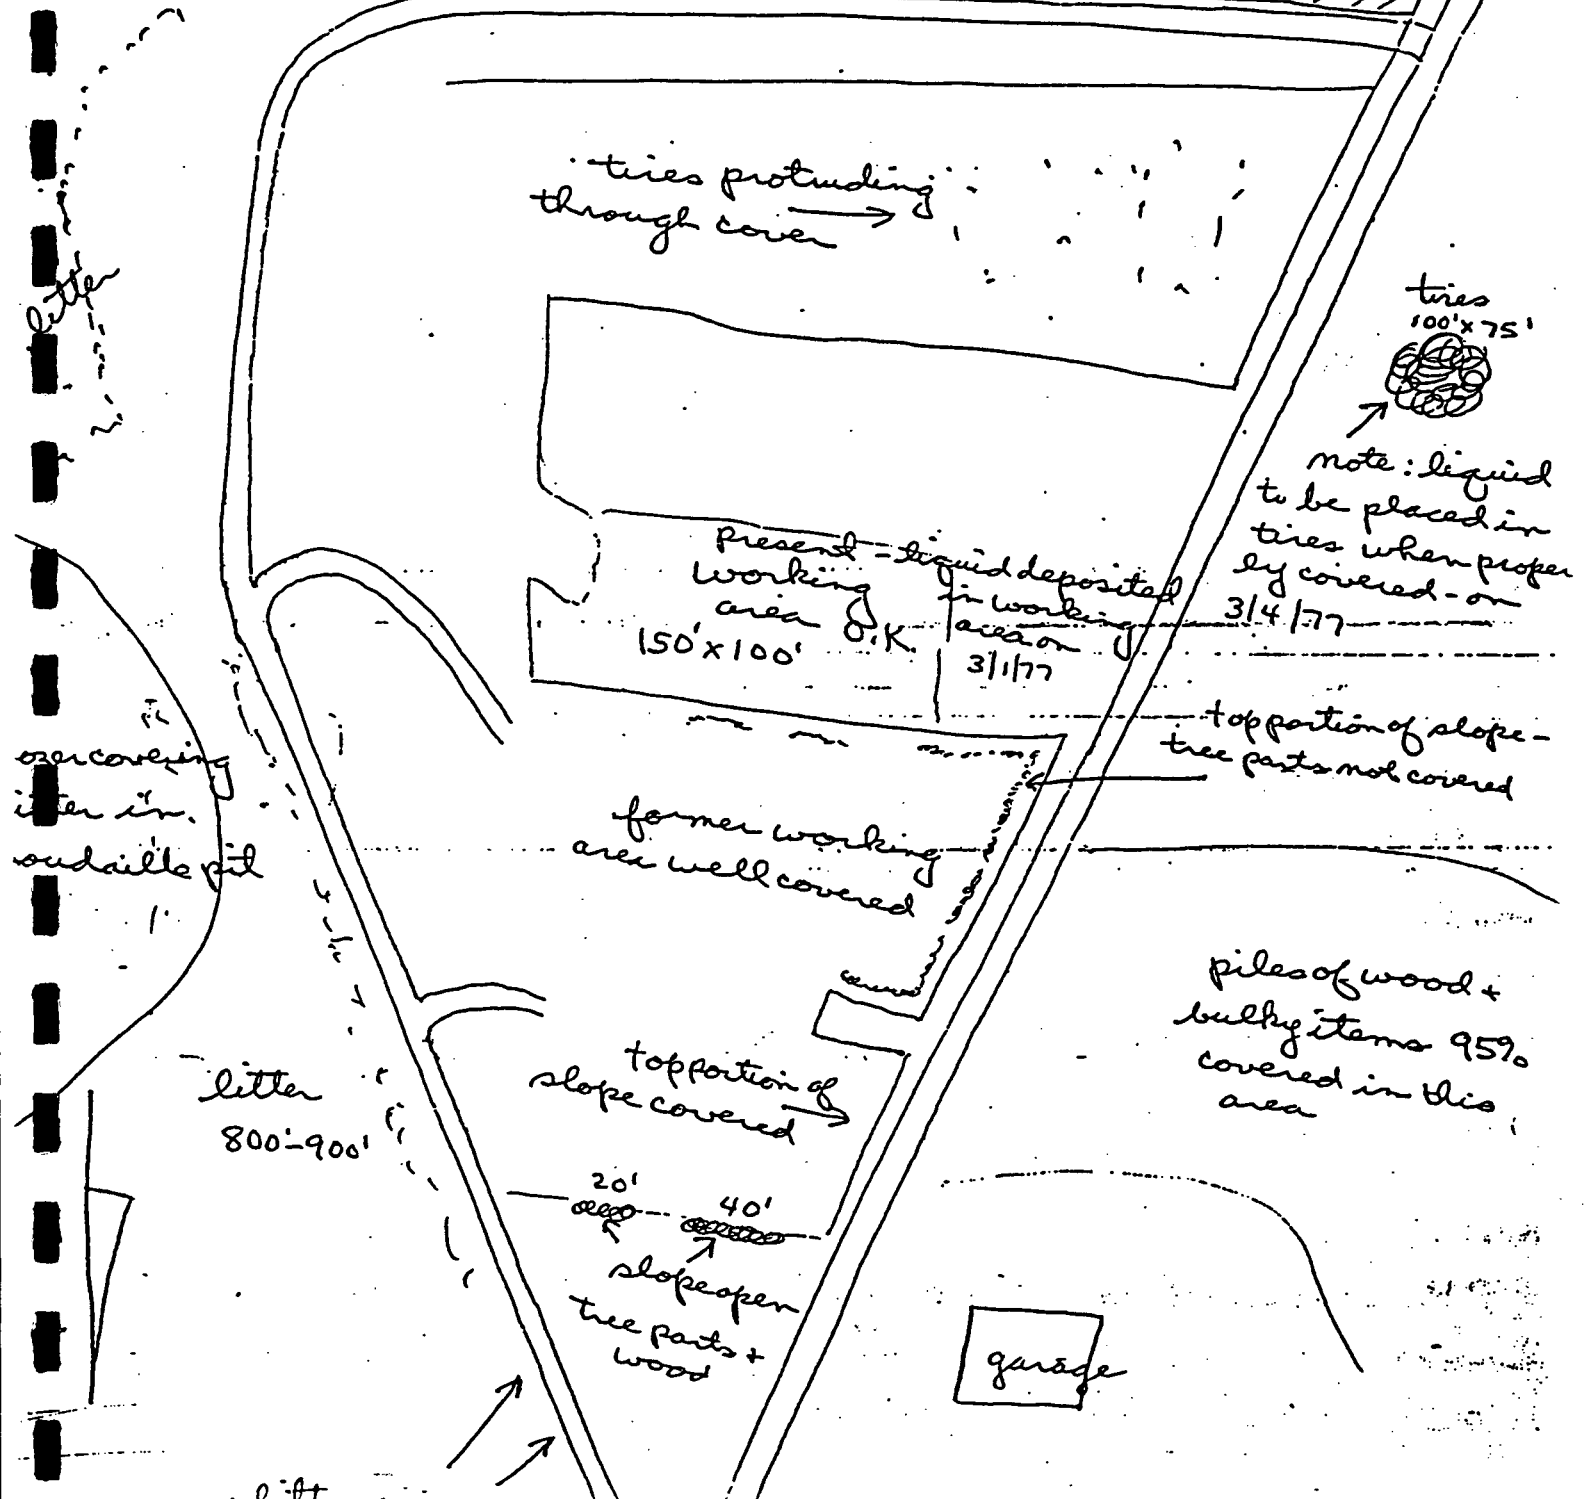 tires protruding
through cover
litter
tires
100'x75'
note: liquid
to be placed in
tires when proper
ly covered - on
3/4/77
present
working
area O.K.
150'x100'
- liquid deposited
in working
area on
3/1/77
top portion of slope -
tree parts not covered
covering
in
pit
former working
area well covered
piles of wood +
bulky items 95%
covered in this
area
top portion of
slope covered
litter
800'-900'
20'
40'
slope open
tree parts +
wood
garage